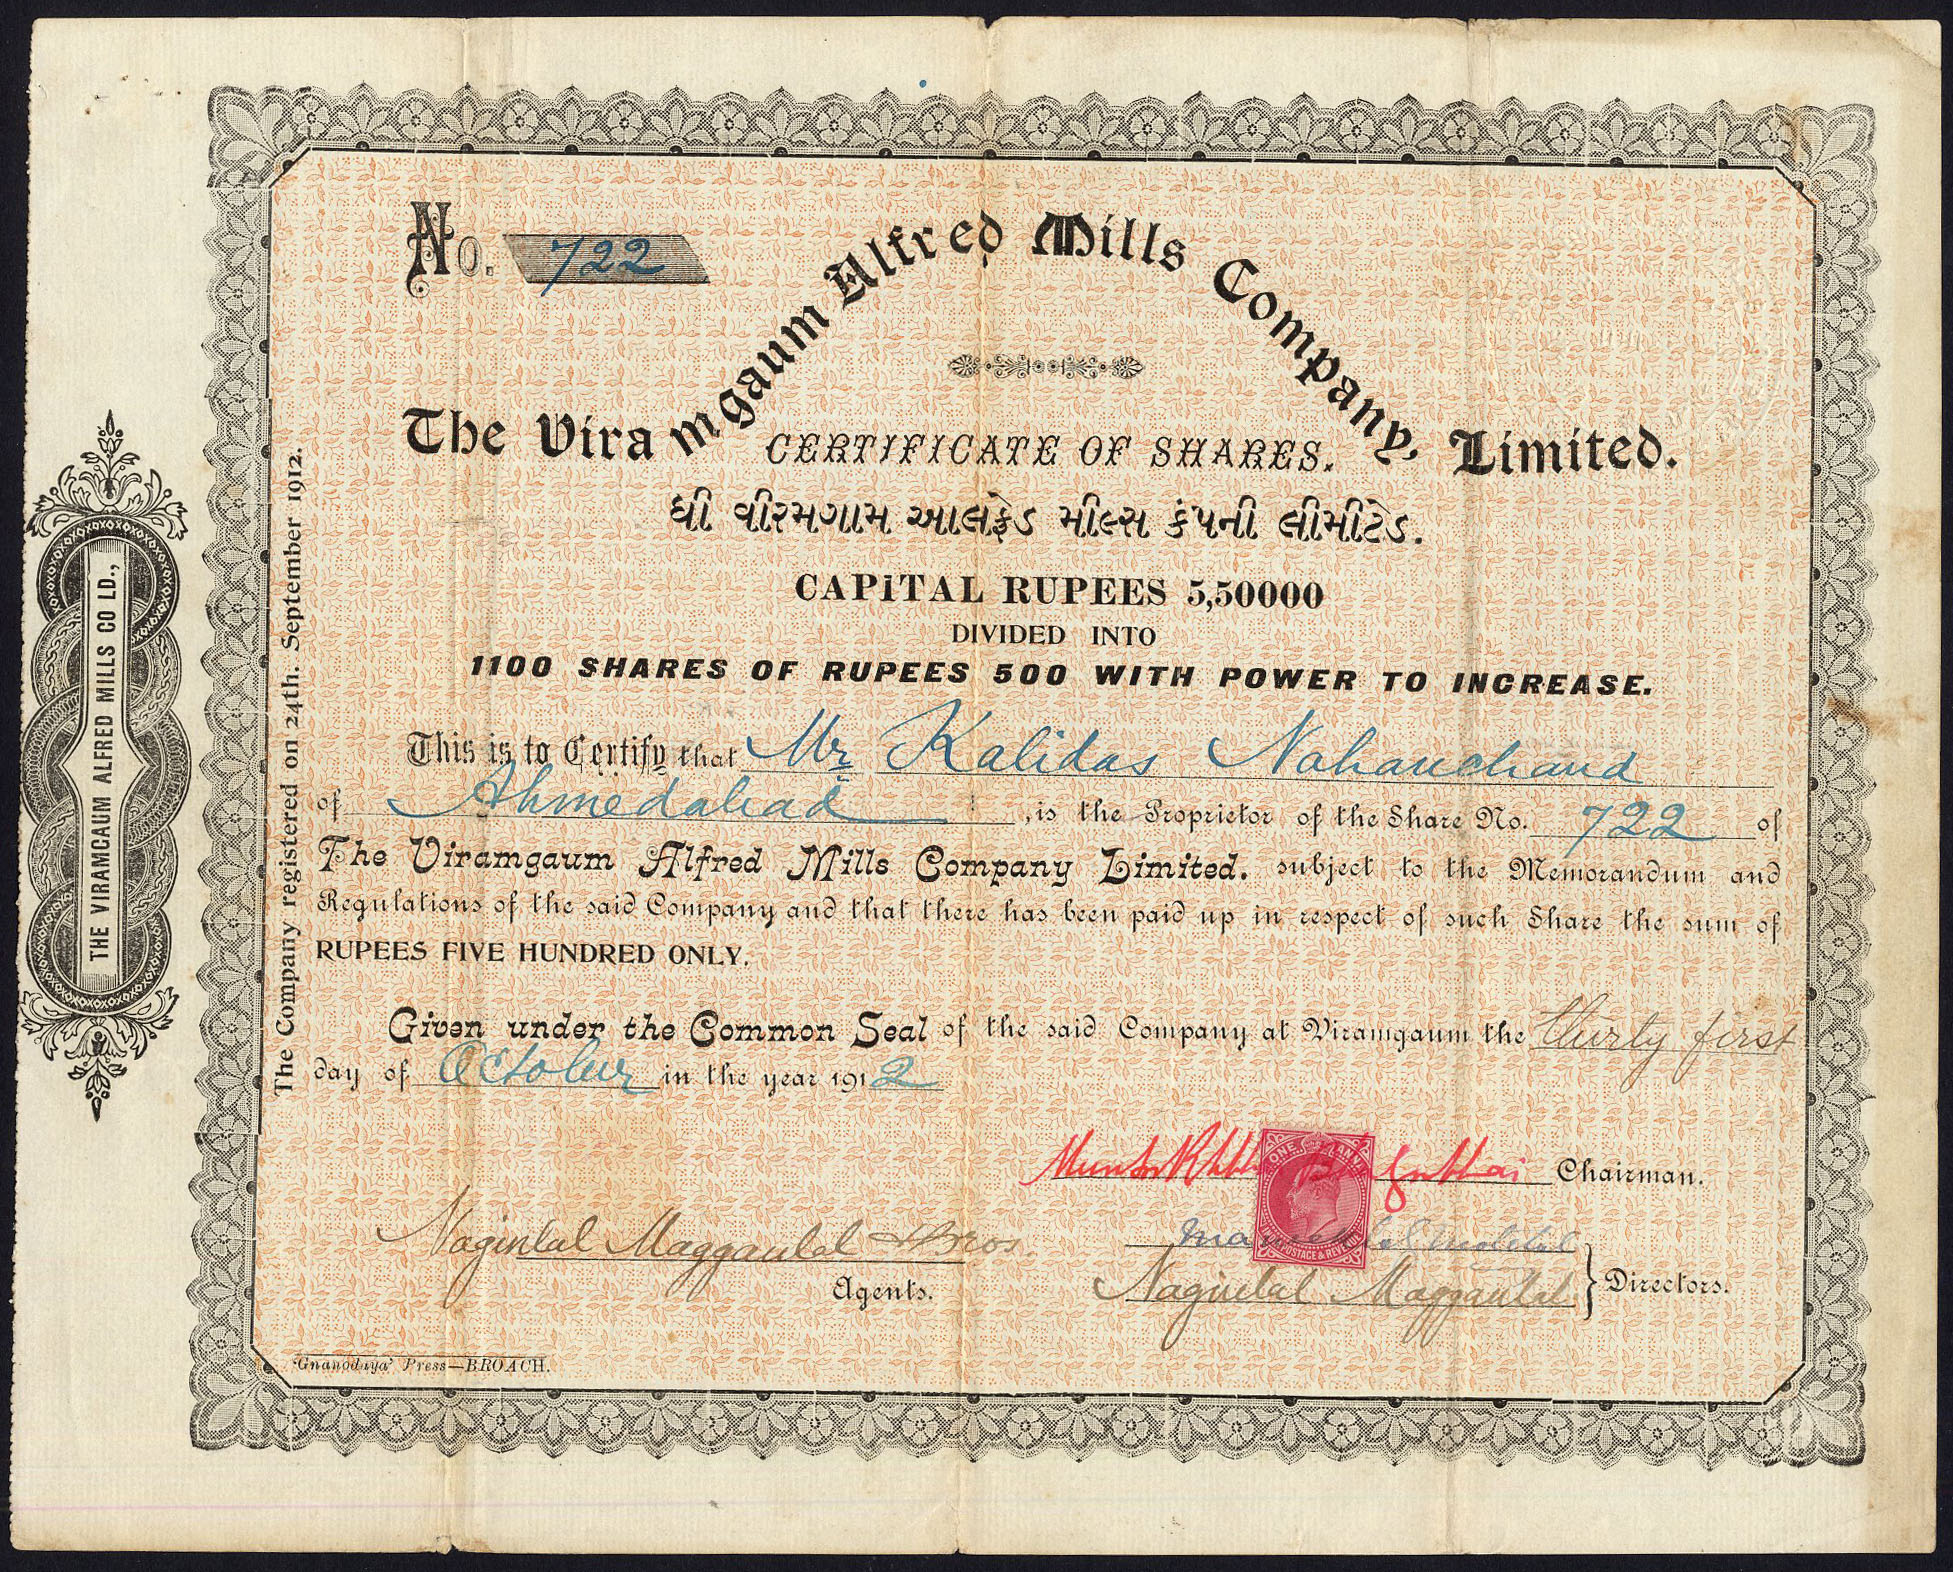 No. 722
The Viramgaum Alfred Mills Company, Limited.
CERTIFICATE OF SHARES.
ધી વીરમગામ આલફ્રેડ મીલ્સ કંપની લીમીટેડ.
CAPiTAL RUPEES 5,50000
DIVIDED INTO
1100 SHARES OF RUPEES 500 WITH POWER TO INCREASE.
This is to Certify that Mr Kalidas Nahanchand
of Ahmedabad, is the Proprietor of the Share No. 722 of
The Viramgaum Alfred Mills Company Limited. subject to the Memorandum and
Regulations of the said Company and that there has been paid up in respect of such Share the sum of
RUPEES FIVE HUNDRED ONLY.
Given under the Common Seal of the said Company at Viramgaum the thirty first
day of October in the year 1912
Chairman.
Naginlal Magganlal & Bros.
Agents.
Naginlal Magganlal
Directors.
'Gnanodaya' Press—BROACH.
The Company registered on 24th. September 1912.
THE VIRAMGAUM ALFRED MILLS CO LD.,
ONE ANNA
INDIA POSTAGE & REVENUE